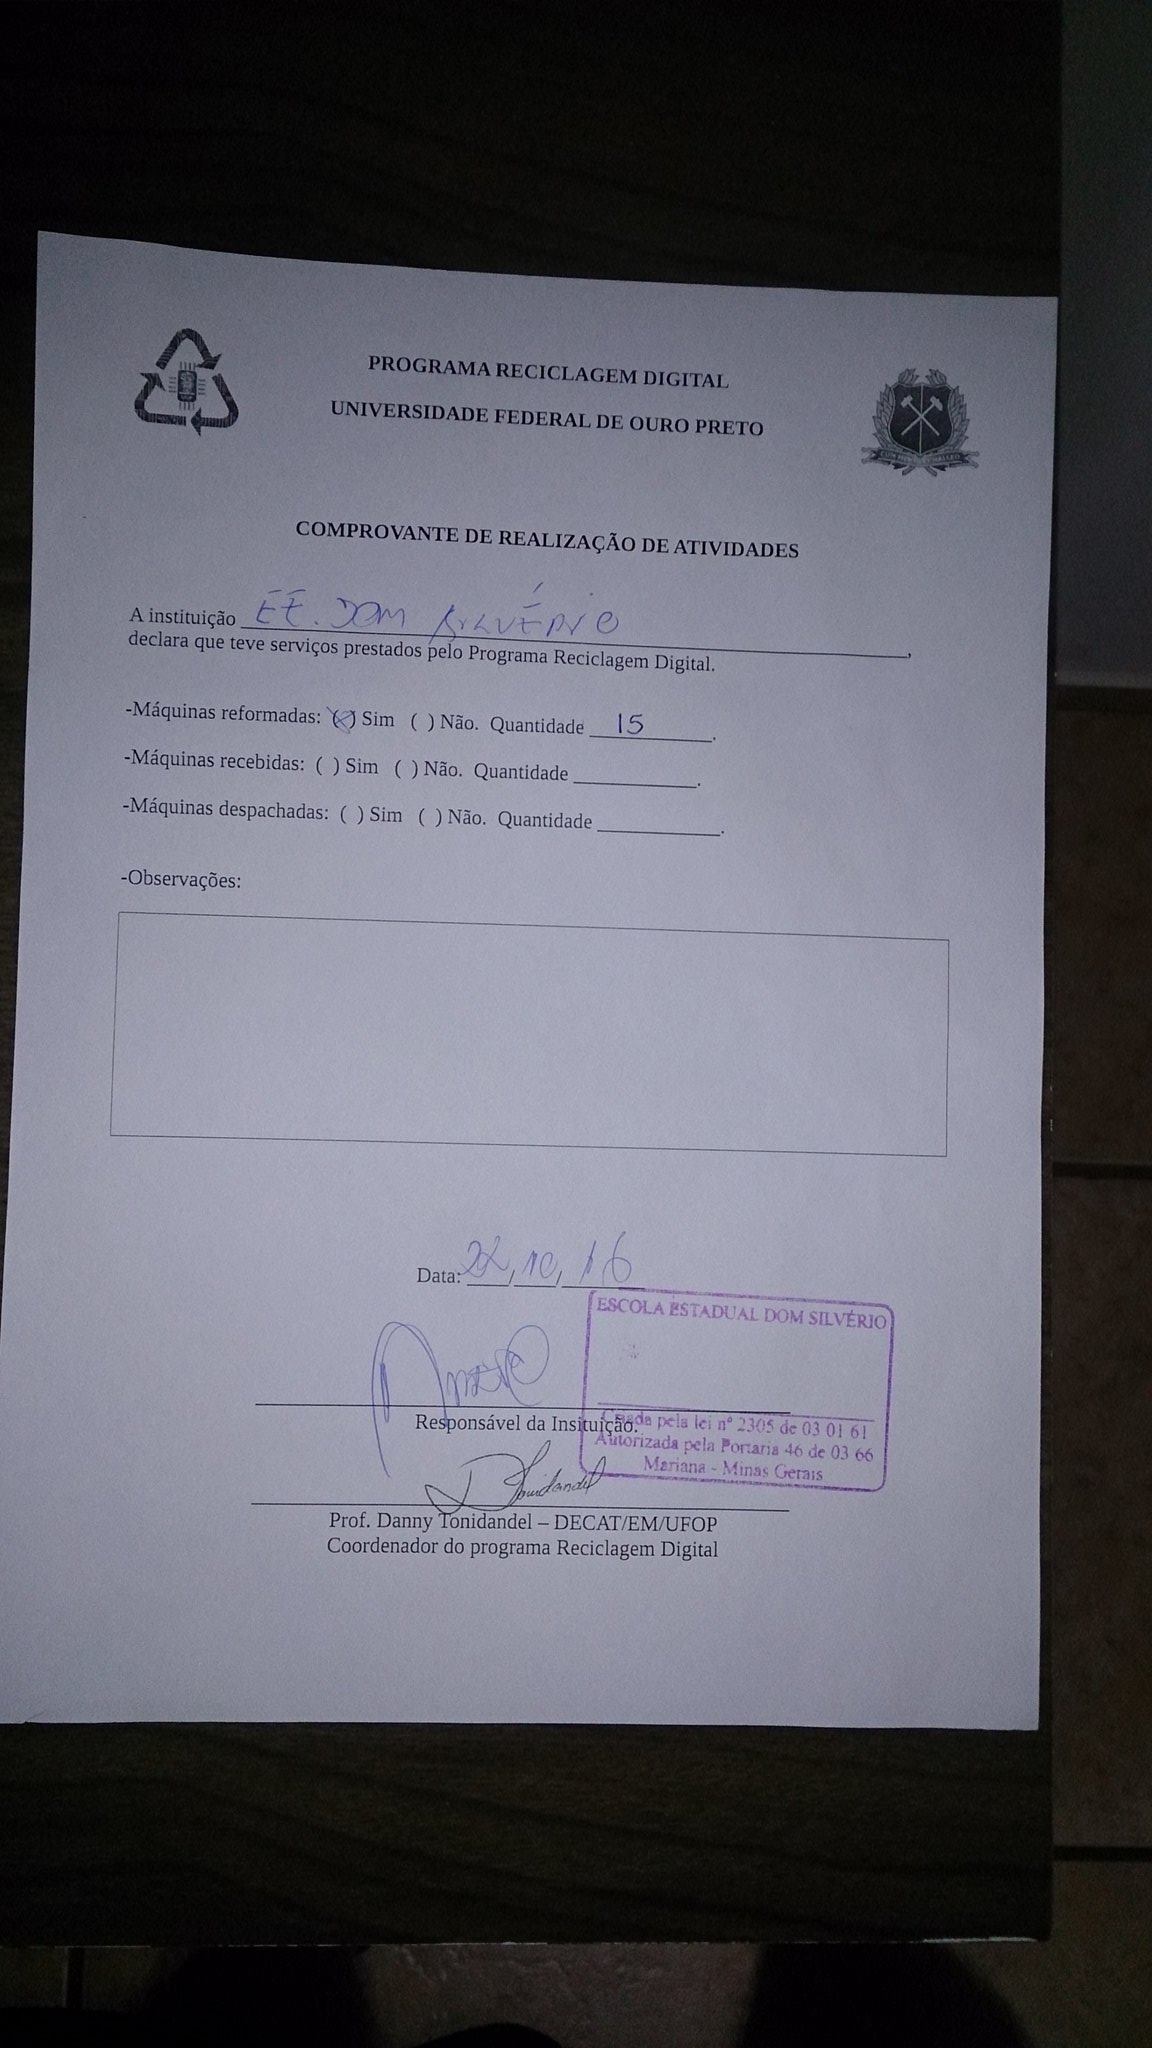 PROGRAMA RECICLAGEM DIGITAL
UNIVERSIDADE FEDERAL DE OURO PRETO
COMPROVANTE DE REALIZAÇÃO DE ATIVIDADES
A instituição EE. DOM SILVÉRIO,
declara que teve serviços prestados pelo Programa Reciclagem Digital.
-Máquinas reformadas: (X) Sim ( ) Não. Quantidade 15.
-Máquinas recebidas: ( ) Sim ( ) Não. Quantidade ________.
-Máquinas despachadas: ( ) Sim ( ) Não. Quantidade ________.
-Observações:
Data: 22/10/16
ESCOLA ESTADUAL DOM SILVÉRIO
Responsável da Insituição.
Criada pela lei nº 2305 de 03 01 61
Autorizada pela Portaria 46 de 03 66
Mariana - Minas Gerais
Tonidandel
Prof. Danny Tonidandel – DECAT/EM/UFOP
Coordenador do programa Reciclagem Digital